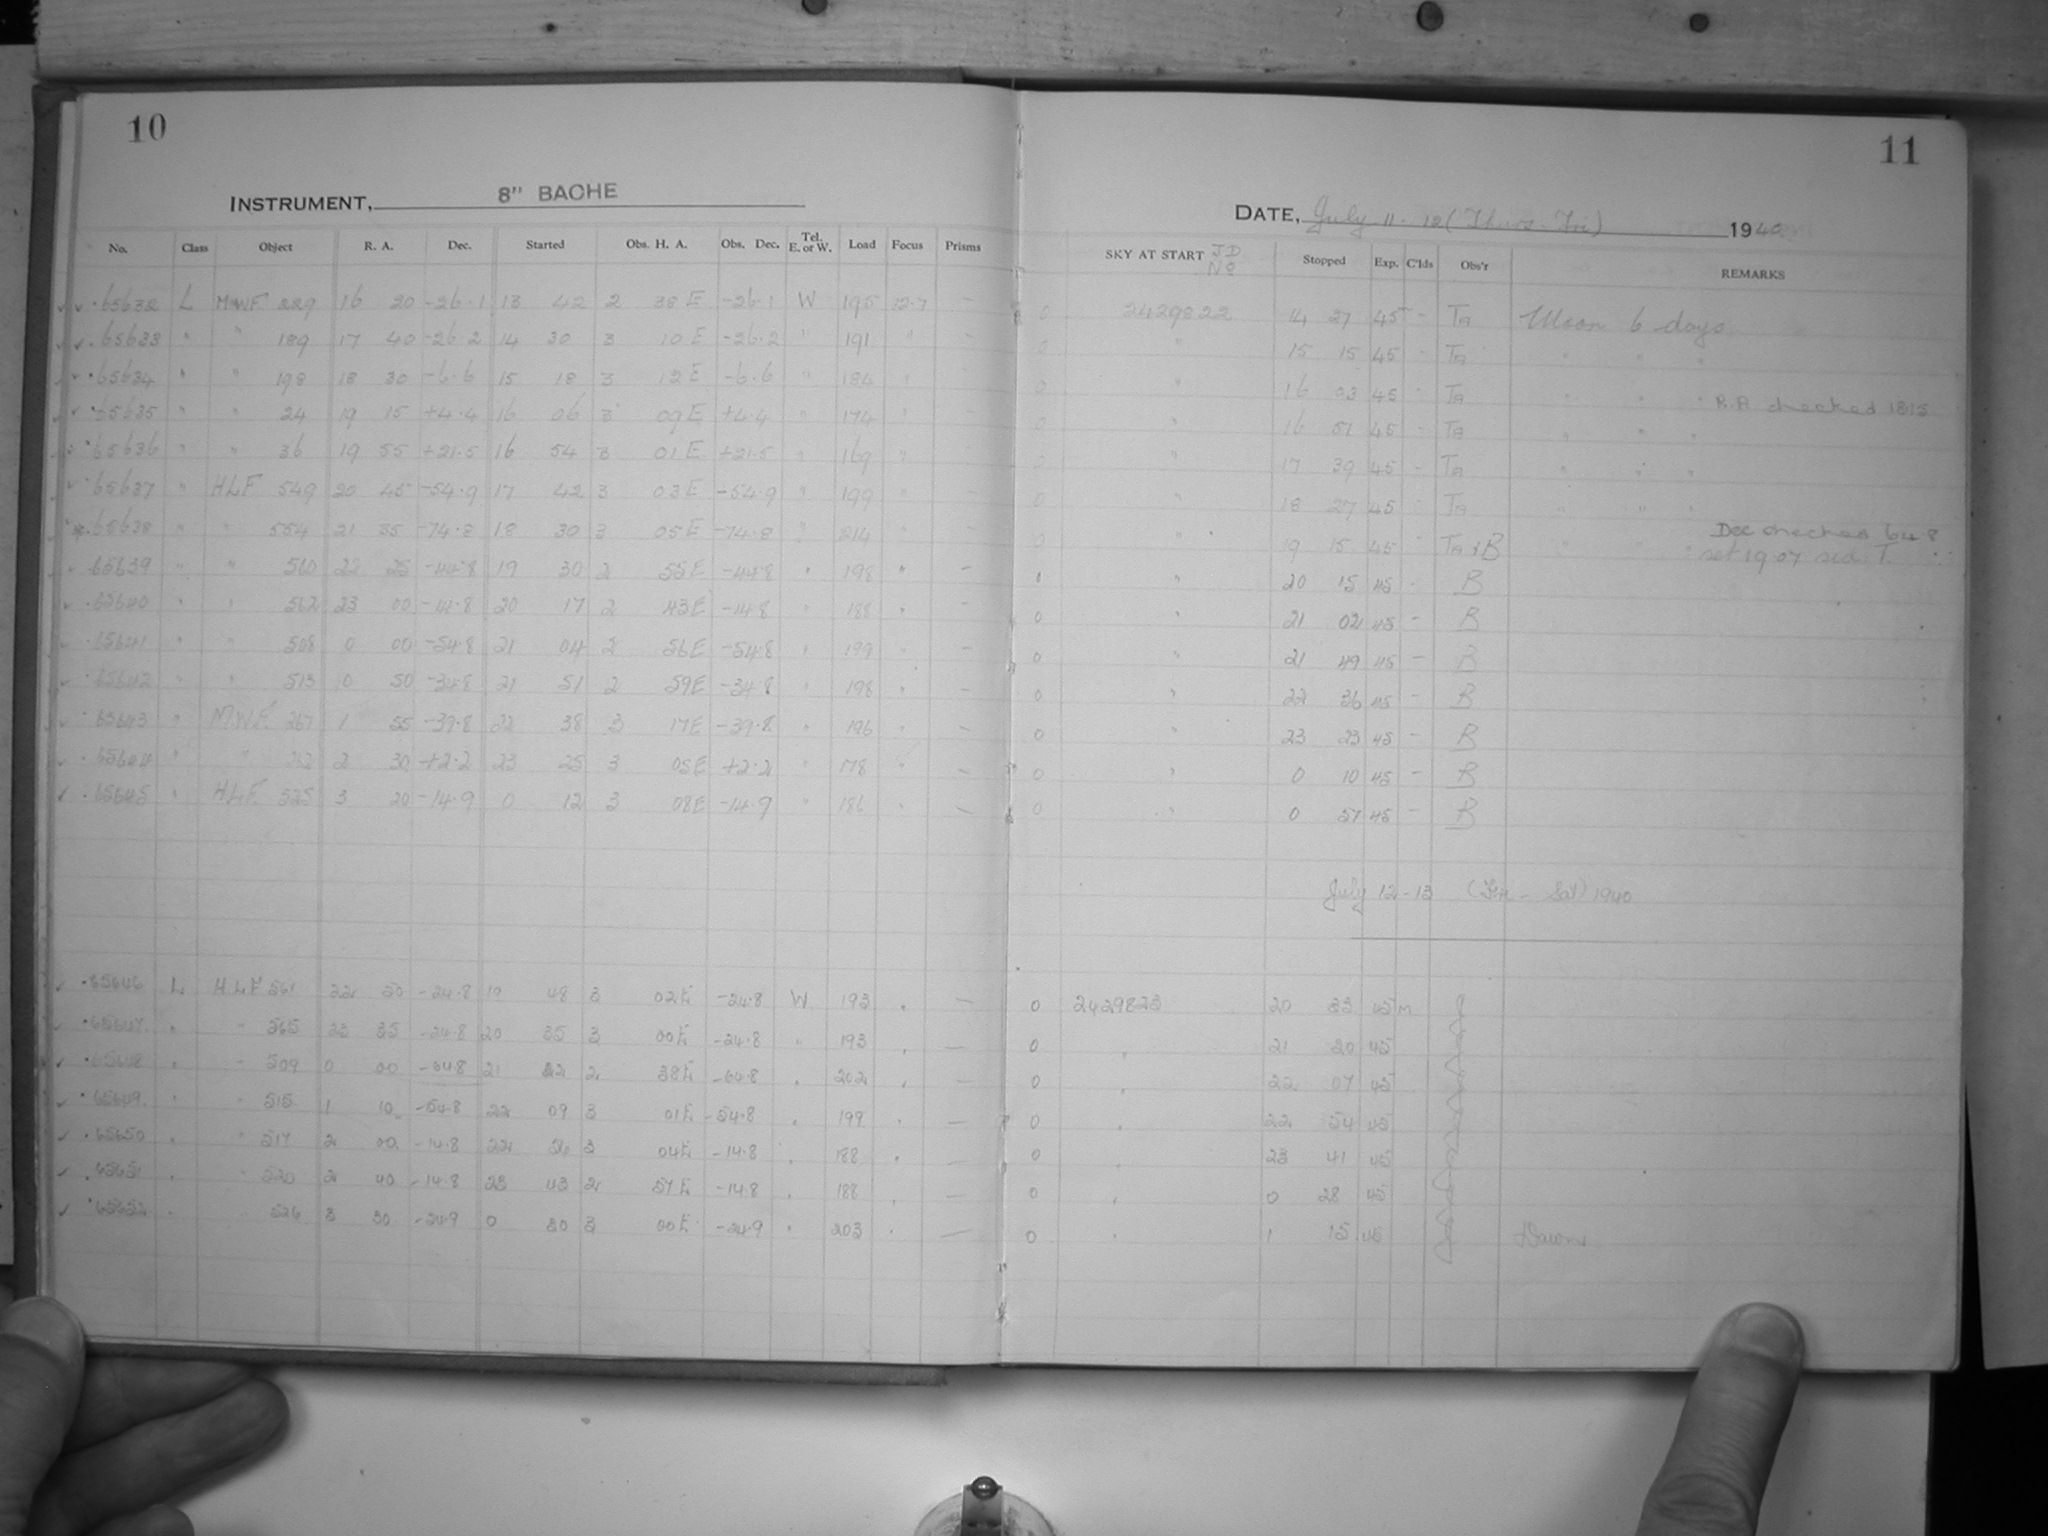 10
INSTRUMENT, 8" BACHE
No. Class Object R. A. Dec. Started Obs. H. A. Obs. Dec. Tel. E. or W. Load Focus Prisms
65632 L MWF 229 16 20 -26.1 13 42 2 38 E -26.1 W 195 12.7 —
65633 " " 189 17 40 -26.2 14 30 3 10 E -26.2 " 191 " —
65634 " " 198 18 30 -6.6 15 18 3 12 E -6.6 " 184 " —
65635 " " 24 19 15 +4.4 16 06 3 09 E +4.4 " 174 " —
65636 " " 36 19 55 +21.5 16 54 3 01 E +21.5 " 169 " —
65637 " HLF 549 20 45 -54.9 17 42 3 03 E -54.9 " 199 " —
65638 " " 554 21 35 -74.8 18 30 3 05 E -74.8 " 214 " —
65639 " " 560 22 25 -44.8 19 30 2 55 E -44.8 " 198 " —
65640 " " 562 23 00 -14.8 20 17 2 43 E -14.8 " 188 " —
65641 " " 508 0 00 -54.8 21 04 2 56 E -54.8 " 199 " —
65642 " " 513 0 50 -34.8 21 51 2 59 E -34.8 " 198 " —
65643 " MWF 267 1 55 -39.8 22 38 3 17 E -39.8 " 196 " —
65644 " " 2 30 +2.2 23 25 3 05 E +2.2 " 178 " —
65645 " HLF 525 3 20 -14.9 0 12 3 08 E -14.9 " 186 " —
65646 L HLF 561 22 50 -24.8 19 48 3 02 E -24.8 W 193 " —
65647 " " 565 23 35 -24.8 20 35 3 00 E -24.8 " 193 " —
65648 " " 509 0 00 -64.8 21 22 2 38 E -64.8 " 202 " —
65649 " " 515 1 10 -54.8 22 09 3 01 E -54.8 " 199 " —
65650 " " 517 2 00 -14.8 22 56 3 04 E -14.8 " 188 " —
65651 " 520 2 40 -14.8 23 43 2 57 E -14.8 " 188 " —
65652 " 526 3 30 -24.9 0 30 3 00 E -24.9 " 203 " —
11
DATE, July 11-12 (Thurs-Fri) 1940
SKY AT START JD No Stopped Exp. C'lds Obs'r REMARKS
0 2429822 14 27 45 - Ta Moon 6 days
0 " 15 15 45 - Ta " " "
0 " 16 03 45 - Ta " " " R.A checked 1815
0 " 16 51 45 - Ta " " "
0 " 17 39 45 - Ta " " "
0 " 18 27 45 - Ta " " "
0 " 19 15 45 - Ta & B " " " Dec checked 64.8
set 19.07 sid. T.
0 " 20 15 45 - B
0 " 21 02 45 - B
0 " 21 49 45 - B
0 " 22 36 45 - B
0 " 23 23 45 - B
0 " 0 10 45 - B
0 " 0 57 45 - B
July 12-13 (Fri - Sat) 1940
0 2429823 20 33 45 m
0 " 21 20 45
0 " 22 07 45
0 " 22 54 45
0 " 23 41 45
0 " 0 28 45
0 " 1 15 45 Dawn